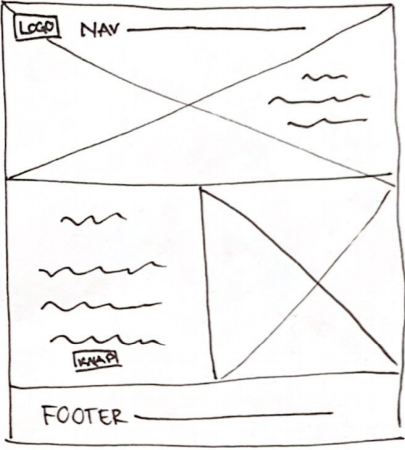 LOGO NAV
KNAP
FOOTER